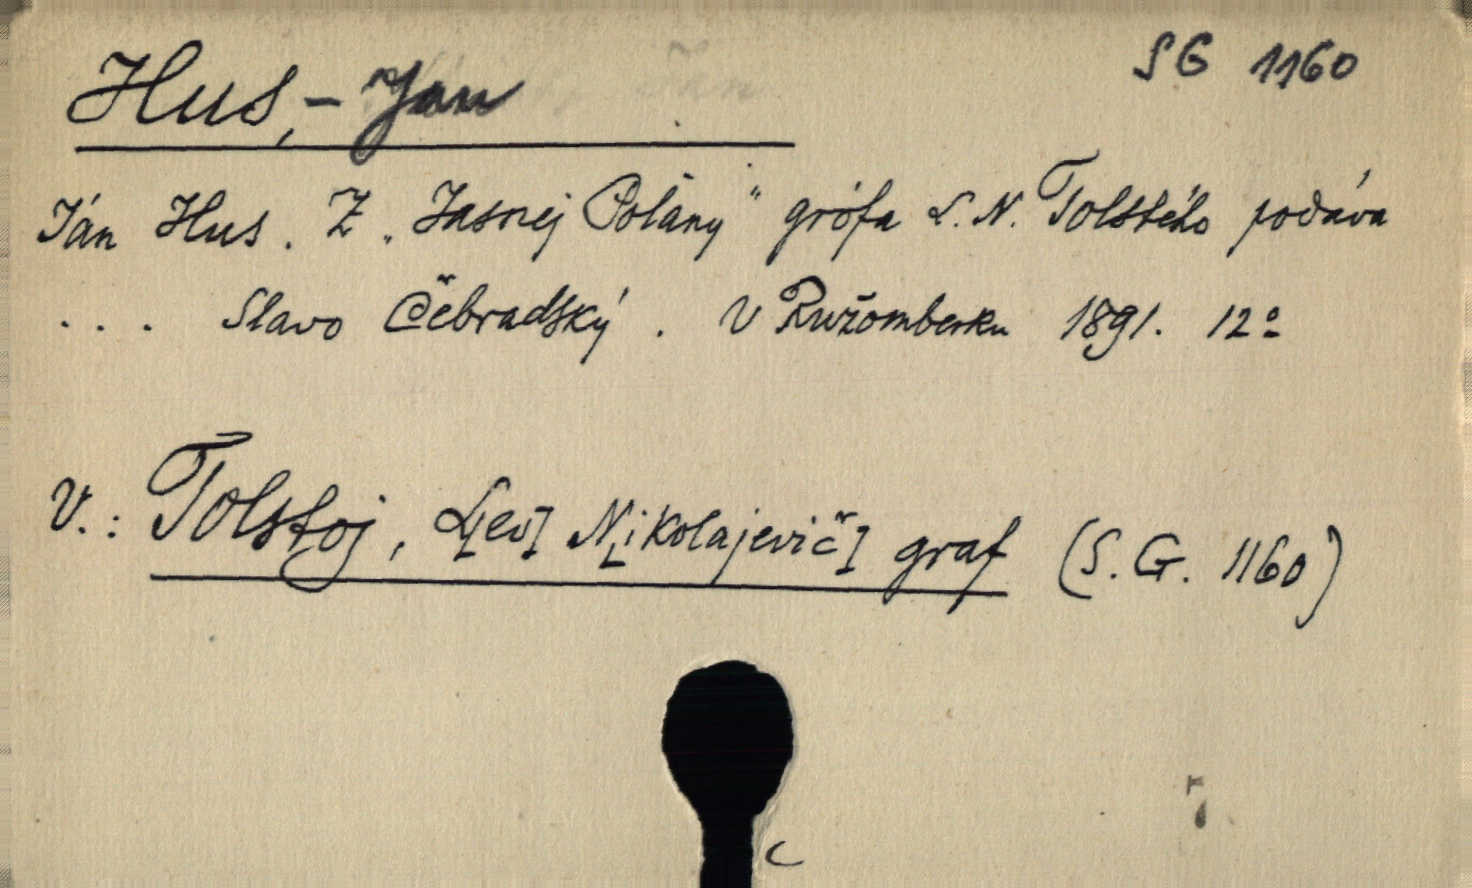 SG 1160
Hus, - Jan
Ján Hus. Z „Jasnej Polany" grófa L. N. Tolstého podáva
... Slavo Čebradský. V Ružomberku 1891. 12º
V.: Tolstoj, L[ev] N[ikolajevič] graf (S. G. 1160)